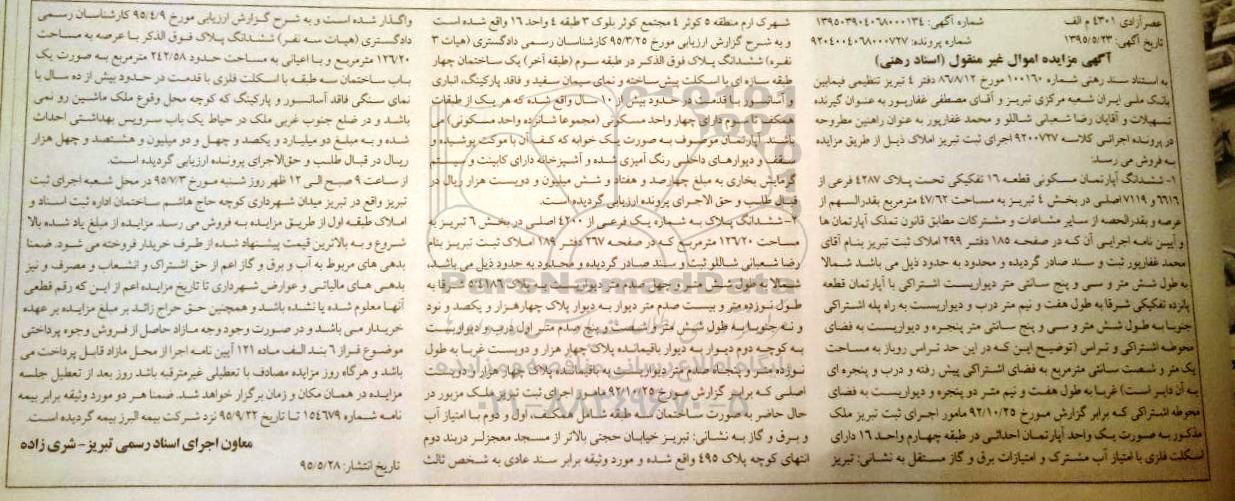 عصر آزادی ۴۳۰۱ م الف
شماره آگهی: ۱۳۹۵۰۳۹۰۴۰۶۸۰۰۰۱۳۴
تاریخ آگهی: ۱۳۹۵/۵/۲۳
شماره پرونده: ۹۲۰۴۰۰۴۰۶۸۰۰۰۷۲۷
آگهی مزایده اموال غیر منقول (اسناد رهنی)
به استناد سند رهنی شماره ۱۰۰۱۶۰ مورخ ۸۶/۸/۱۲ دفتر ۴ تبریز تنظیمی فیمابین
بانک ملی ایران شعبه مرکزی تبریز و آقای مصطفی غفارپور به عنوان گیرنده
تسهیلات و آقایان رضا شعبانی شاللو و محمد غفارپور به عنوان راهنین مطروحه
در پرونده اجرائی کلاسه ۹۲۰۰۷۲۷ اجرای ثبت تبریز املاک ذیل از طریق مزایده
به فروش می رسد:
۱- ششدانگ آپارتمان مسکونی قطعه ۱۶ تفکیکی تحت پلاک ۴۲۸۷ فرعی از
۶۶۱۶ و ۷۱۱۹ اصلی در بخش ۴ تبریز به مساحت ۴۷/۶۲ مترمربع بقدرالسهم از
عرصه و بقدرالحصه از سایر مشاعات و مشترکات مطابق قانون تملک آپارتمان ها
و آیین نامه اجرایی آن که در صفحه ۱۸۵ دفتر ۲۹۹ املاک ثبت تبریز بنام آقای
محمد غفارپور ثبت و سند صادر گردیده و محدود به حدود ذیل می باشد شمالا
به طول شش متر و سی و پنج سانتی متر دیواریست اشتراکی با آپارتمان قطعه
پانزده تفکیکی شرقا به طول هفت و نیم متر درب و دیواریست به راه پله اشتراکی
جنوبا به طول شش متر و سی و پنج سانتی متر پنجره و دیواریست به فضای
محوطه اشتراکی و تراس (توضیح این که در این حد تراس روباز به مساحت
یک متر و شصت سانتی مترمربع به فضای اشتراکی پیش رفته و درب و پنجره ای
به آن دایر است) غربا به طول هفت و نیم متر دو پنجره و دیواریست به فضای
محوطه اشتراکی که برابر گزارش مورخ ۹۲/۱۰/۲۵ مامور اجرای ثبت تبریز ملک
مذکور به صورت یک واحد آپارتمان احداثی در طبقه چهارم واحد ۱۶ دارای
اسکلت فلزی با امتیاز آب مشترک و امتیازات برق و گاز مستقل به نشانی: تبریز
شهرک ارم منطقه ۵ کوثر ۴ مجتمع کوثر بلوک ۳ طبقه ۴ واحد ۱۶ واقع شده است
و به شرح گزارش ارزیابی مورخ ۹۵/۳/۲۵ کارشناسان رسمی دادگستری (هیات ۳
نفره) ششدانگ پلاک فوق الذکر در طبقه سوم (طبقه آخر) یک ساختمان چهار
طبقه سازه ای با اسکلت پیش ساخته و نمای سیمان سفید و فاقد پارکینگ، انباری
و آسانسور با قدمت در حدود بیش از ۱۰ سال واقع شده که هر یک از طبقات
همکف تا سوم دارای چهار واحد مسکونی (مجموعا شانزده واحد مسکونی) می
باشند. آپارتمان موصوف به صورت یک خوابه که کف آن با موکت پوشیده و
سقف و دیوارهای داخلی رنگ آمیزی شده و آشپزخانه دارای کابینت و سیستم
گرمایش بخاری به مبلغ چهارصد و هفتاد و شش میلیون و دویست هزار ریال در
قبال طلب و حق الاجرای پرونده ارزیابی گردیده است.
۲- ششدانگ پلاک به شماره یک فرعی از ۴۲۰۰ اصلی در بخش ۶ تبریز به
مساحت ۱۲۶/۲۰ مترمربع که در صفحه ۲۶۷ دفتر ۱۸۹ املاک ثبت تبریز بنام
رضا شعبانی شاللو ثبت و سند صادر گردیده و محدود به حدود ذیل می باشد،
شمالا به طول شش متر و چهل صدم متر دیواریست به پلاک شرقا به
طول نوزده متر و بیست صدم متر دیوار به دیوار پلاک چهارهزار و یکصد و نود
و نه جنوبا به طول شش متر و شصت و پنج صدم متر اول درب و دیواریست
به کوچه دوم دیوار به دیوار باقیمانده پلاک چهار هزار و دویست غربا به طول
نوزده متر و پنجاه صدم متر دیواریست به باقیمانده پلاک چهار هزار و دویست
اصلی که برابر گزارش مورخ ۹۲/۱۰/۲۵ مامور اجرای ثبت تبریز ملک مزبور در
حال حاضر به صورت ساختمان سه طبقه شامل همکف، اول و دوم با امتیاز آب
و برق و گاز به نشانی: تبریز خیابان حجتی بالاتر از مسجد معجزلر دربند دوم
انتهای کوچه پلاک ۴۹۵ واقع شده و مورد وثیقه برابر سند عادی به شخص ثالث
واگذار شده است و به شرح گزارش ارزیابی مورخ ۹۵/۴/۹ کارشناسان رسمی
دادگستری (هیات سه نفر) ششدانگ پلاک فوق الذکر با عرصه به مساحت
۱۲۶/۲۰ مترمربع و با اعیانی به مساحت حدود ۲۴۲/۵۸ مترمربع به صورت یک
باب ساختمان سه طبقه با اسکلت فلزی با قدمت در حدود بیش از ده سال با
نمای سنگی فاقد آسانسور و پارکینگ که کوچه محل وقوع ملک ماشین رو نمی
باشد و در ضلع جنوب غربی ملک در حیاط یک باب سرویس بهداشتی احداث
شده و به مبلغ دو میلیارد و یکصد و چهل و دو میلیون و هشتصد و چهل هزار
ریال در قبال طلب و حق الاجرای پرونده ارزیابی گردیده است.
از ساعت ۹ صبح الی ۱۲ ظهر روز شنبه مورخ ۹۵/۷/۳ در محل شعبه اجرای ثبت
تبریز واقع در تبریز میدان شهرداری کوچه حاج هاشم ساختمان اداره ثبت اسناد و
املاک طبقه اول از طریق مزایده به فروش می رسد. مزایده از مبلغ یاد شده بالا
شروع و به بالاترین قیمت پیشنهاد شده از طرف خریدار فروخته می شود. ضمنا
بدهی های مربوط به آب و برق و گاز اعم از حق اشتراک و انشعاب و مصرف و نیز
بدهی های مالیاتی و عوارض شهرداری تا تاریخ مزایده اعم از این که رقم قطعی
آنها معلوم شده یا نشده باشد و همچنین حق حراج زائد بر مبلغ مزایده بر عهده
خریدار می باشد و در صورت وجود وجه مازاد حاصل از فروش وجوه پرداختی
موضوع فراز ۶ بند الف ماده ۱۲۱ آیین نامه اجرا از محل مازاد قابل پرداخت می
باشد و هرگاه روز مزایده مصادف با تعطیلی غیرمترقبه باشد روز بعد از تعطیل جلسه
مزایده در همان مکان و زمان برگزار خواهد شد. ضمنا هر دو مورد وثیقه برابر بیمه
نامه شماره ۱۵۴۶۷۹ تا تاریخ ۹۵/۹/۲۲ نزد شرکت بیمه البرز بیمه گردیده است.
معاون اجرای اسناد رسمی تبریز- شری زاده
تاریخ انتشار: ۹۵/۵/۲۸